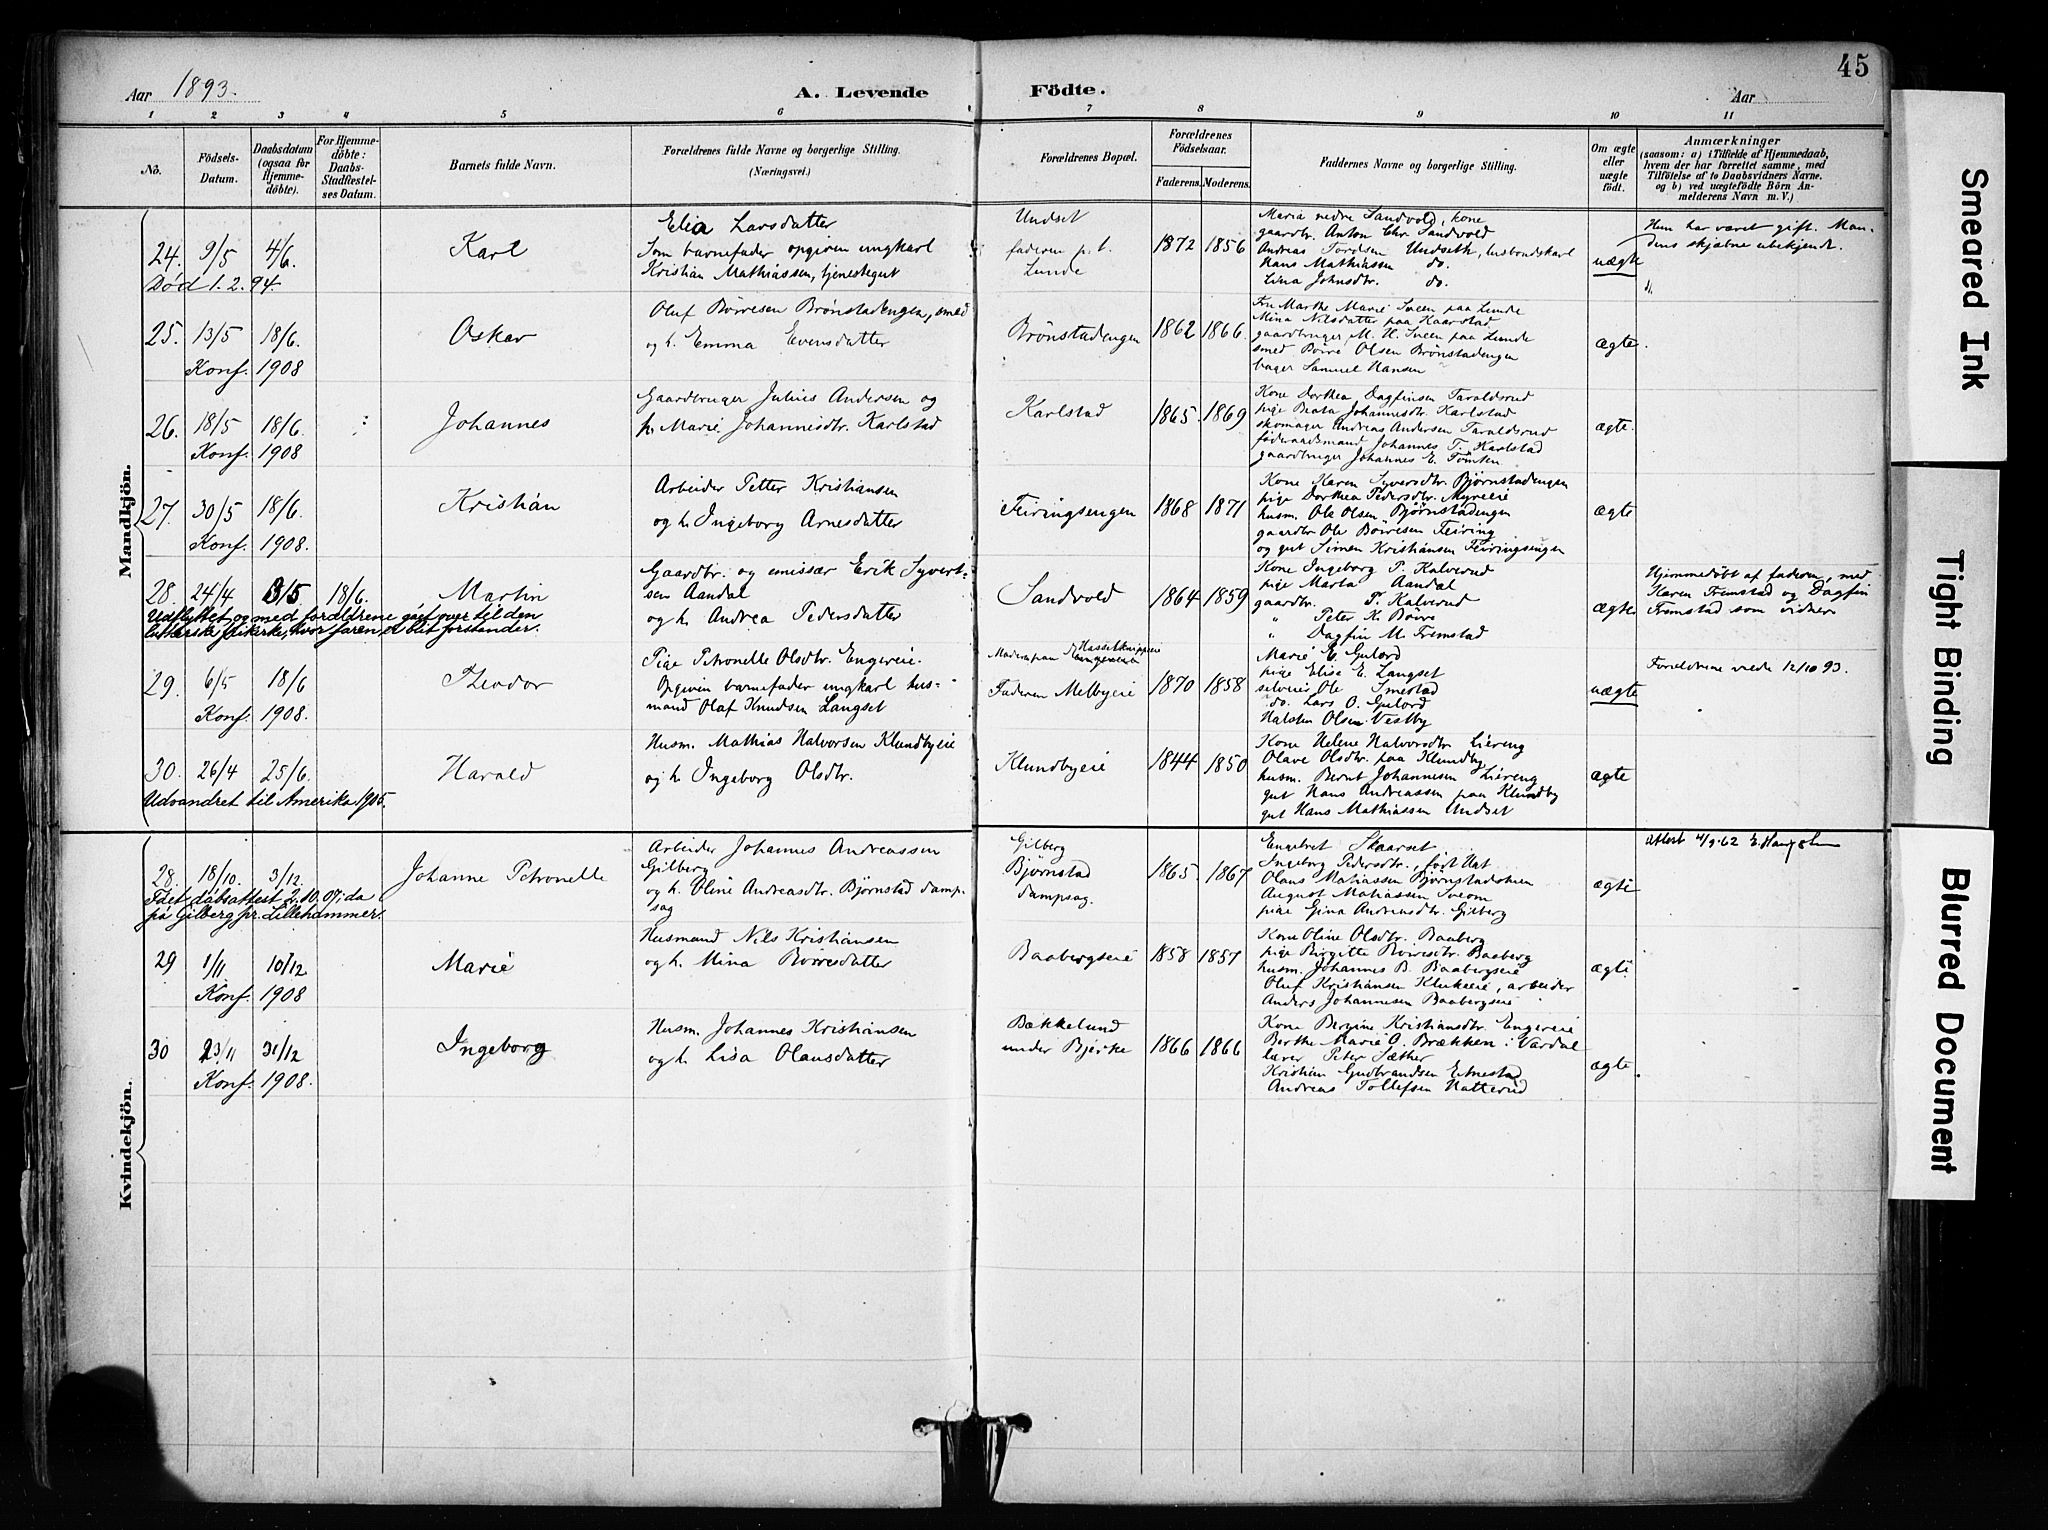 45
Aar 1893.
A. Levende Födte.
Aar
1 2 3 4 5 6 7 8 9 10 11
No.
Födsels-Datum.
Daabsdatum (ogsaa for Hjemme-döbte).
For Hjemme-döbte: Daabs-Stadfæstel-ses Datum.
Barnets fulde Navn.
Forældrenes fulde Navne og borgerlige Stilling.
(Næringsvei.)
Forældrenes Bopæl.
Forældrenes Födselsaar.
Faderens. Moderens.
Faddernes Navne og borgerlige Stilling.
Om ægte eller uægte födt.
Anmærkninger
(saasom: a) i Tilfælde af Hjemmedaab,
hvem der har forrettet samme, med
Tilföielse af to Daabsvidners Navne.
og b) ved uægtefödte Börn An-
melderens Navn m. V.)
Mandkjön.
24. 9/5 4/6. Karl
Død 1.2.94.
Elia Larsdatter
Som barnefader opgiven ungkarl
Kristian Mathiassen, tjenestegut
Undset
faderen p.t.
Lunde
1872 1856
Maria nedre Sandvold, kone
gaardbr. Anton Chr. Sandvold
Andreas Undseth, husbondskarl
Hans Mathiassen do.
Lina Johnsdtr. do.
uægte
Hun har været gift. Man-
dens skjæbne ubekjendt.
25. 13/5 18/6. Oskar
Konf. 1908
Oluf Børresen Brønstadengen, smed
og h. Emma Evensdatter
Brønstadengen
1862 1866
Fru Marthe Marie Sveen paa Lunde
Mina Nilsdatter paa Kaarstad
gaardbruger M. H. Sveen paa Lunde
smed Børre Olsen Brønstadengen
bager Samuel Hansen
ægte.
26. 18/5 18/6. Johannes
Konf. 1908
Gaardbruger Julius Andersen og
h. Marie Johannesdtr. Karlstad
Karlstad
1865. 1869
Kone Dorthea Dagfinsen Taraldsrud
pige Beata Johannesdtr. Karlstad
skomager Andreas Andersen Taraldsrud
føderaadsmand Johannes T. Karlstad
gaardbruger Johannes E. Tomten
ægte.
27. 30/5 18/6. Kristian
Konf. 1908.
Arbeider Petter Kristiansen
og h. Ingeborg Arnesdatter
Feiringsengen
1868 1871
Kone Karen Syversdtr. Bjørnstadengen
pige Dorthea Pedersdtr. Myreeie
husm. Ole Olsen Bjørnstadengen
gaardbr. Ole Børresen Feiring
og gut Simen Kristiansen Feiringsengen
ægte
28. 24/4 3/5 18/6. Martin
Udflyttet og med forældrene gåt over til den
lutherske frikirke, hvor faren er blit forstander.
Gaardbr. og emissær Erik Syvert-
sen Aandal
og h. Andrea Pedersdatter
Sandvold
1864 1859
Kone Ingeborg P. Kalverud
pige Marta Aandal
gaardbr. P. Kalverud
" Peter K. Børre
" Dagfin M. Fremstad
ægte
Hjemmedøbt af faderen, med
Karen Fremstad og Dagfin
Fremstad som vidner
29. 6/5 18/6 Theodor
Konf. 1908.
Pige Petronelle Olsdtr. Engereie.
Opgiven barnefader ungkarl hus-
mand Olaf Knudsen Langset
Faderen Melbyeie
1870 1858
Marie E. Gulord
pige Elise E. Langset
selveier Ole Smestad
do. Lars O. Gulord
Halsten Olsen Vestby
uægte
Forældrene viede 12/10 93.
30. 26/4 25/6. Harald
Udvandret til Amerika 1905.
Husm. Mathias Halvorsen Klundbyeie
og h. Ingeborg Olsdtr.
Klundbyeie
1844 1850
Kone Helene Halvorsdtr. Liereng
Olave Olsdtr. paa Klundby
husm. Bernt Johannesen Liereng
gut Hans Andreassen paa Klundby
gut Hans Mathiassen Undset
ægte
Kvindekjön.
28. 18/10. 3/12. Johanne Petronelle
Fået dåbsattest 2.10.07; da
på Gilberg pr. Lillehammer.
Arbeider Johannes Andreassen
Gilberg
og h. Oline Andreasdtr. Bjørnstad damp-
sag
Gilberg
Bjørnstad
dampsag.
1865. 1867
Engebret Skaarset
Ingeborg Pedersdtr., født
Olaus Matiassen
August Matiassen Sveom
pige Gina Andreasdtr. Gilberg
ægte
Attest 4/9.62
29 1/11 10/12 Marie
Konf. 1908
Husmand Nils Kristiansen
og h. Mina Børresdatter
Baabergseie
1858 1857
Kone Oline Olsdtr. Baaberg
pige Birgitte Børresdtr. Baaberg
husm. Johannes B. Baabergseie
Oluf Kristiansen Klukeeie, arbeider
Anders Johannesen Baabergseie
ægte
30 23/11 31/12 Ingeborg
Konf. 1908.
Husm. Johannes Kristiansen
og h. Lisa Olausdatter
Bækkelund
under Bjerke
1866 1866
Kone Bergine Kristiansdtr. Engereie
Berthe Marie O. Brækken i Vardal
lærer Peter Sæther
Kristian Gudbrandsen Elnestad
Andreas Tollefsen Hatterud
ægte.
Smeared Ink
Tight Binding
Blurred Document